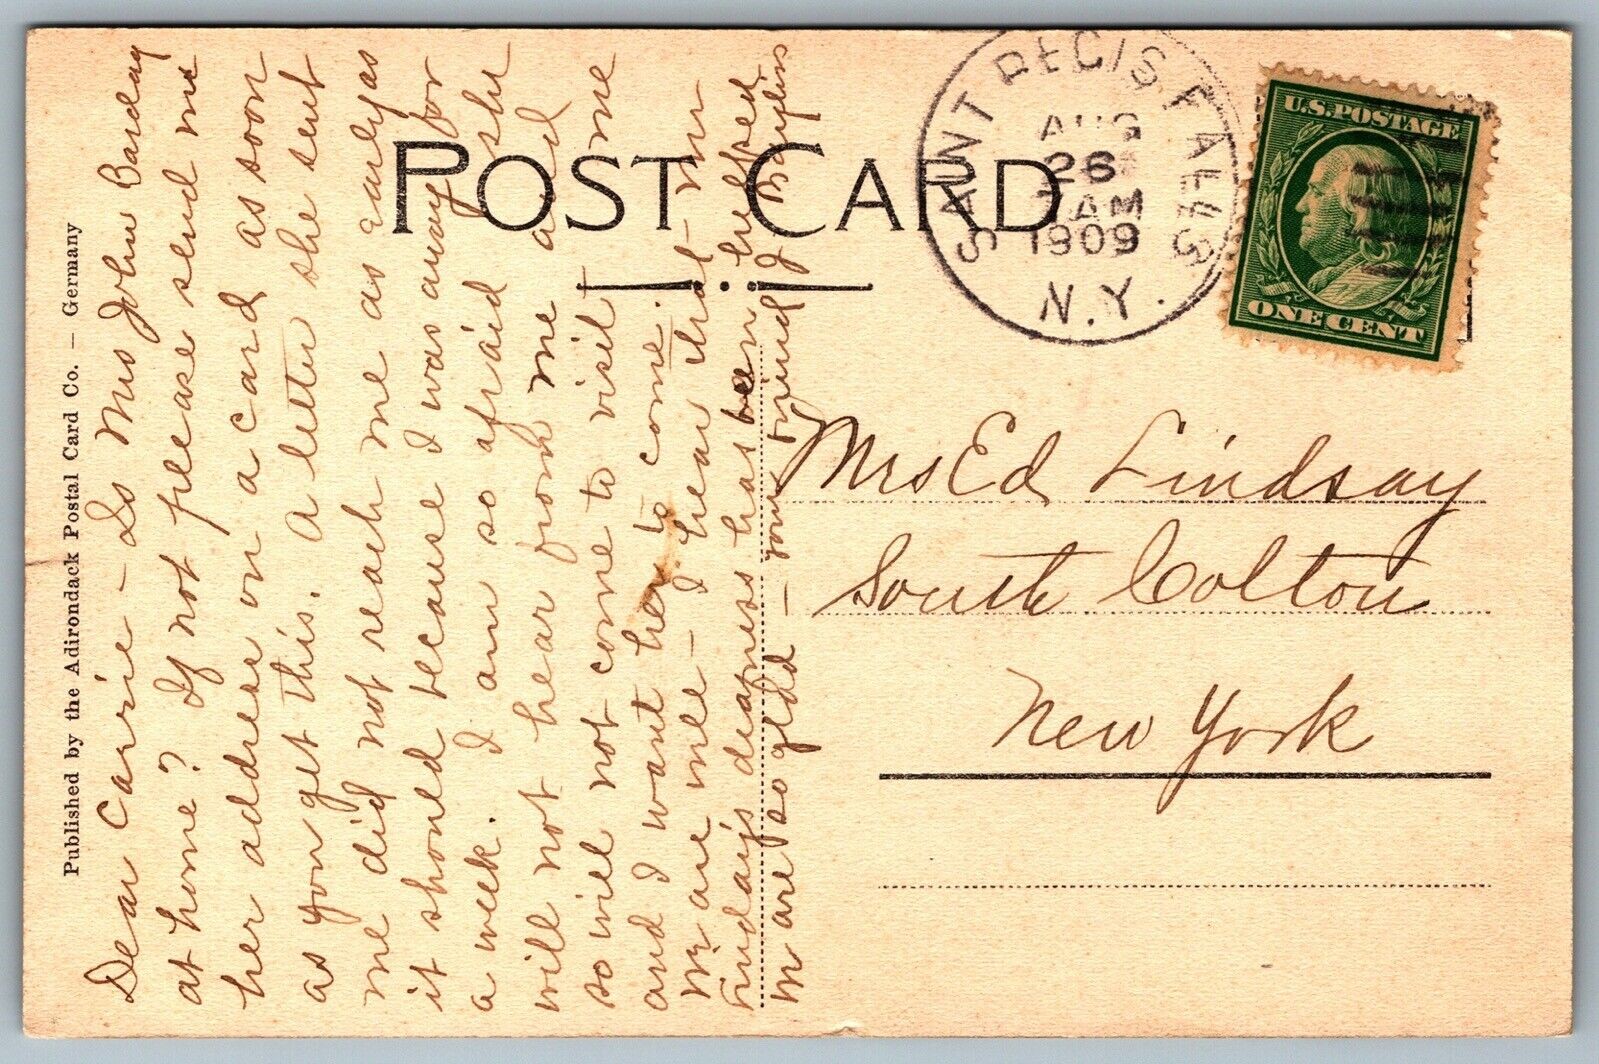 Published by the Adirondack Postal Card Co. – Germany
Dear Carrie – Is Mrs John Barclay
at home? If not please send me
her address on a card as soon
as you get this. A letter she sent
me did not reach me as early as
it should because I was away for
a week. I am so afraid she
will not hear from me and
so will not come to visit me
and I want her to come.
We are well – I hear that Mr
Lindsay's deafness has been helped
We are so glad – your friend J Bayliss
POST CARD
SAINT REGIS FALLS
AUG
26
7 AM
1909
N.Y.
U.S. POSTAGE
ONE CENT
Mrs Ed Lindsay
South Colton
New York